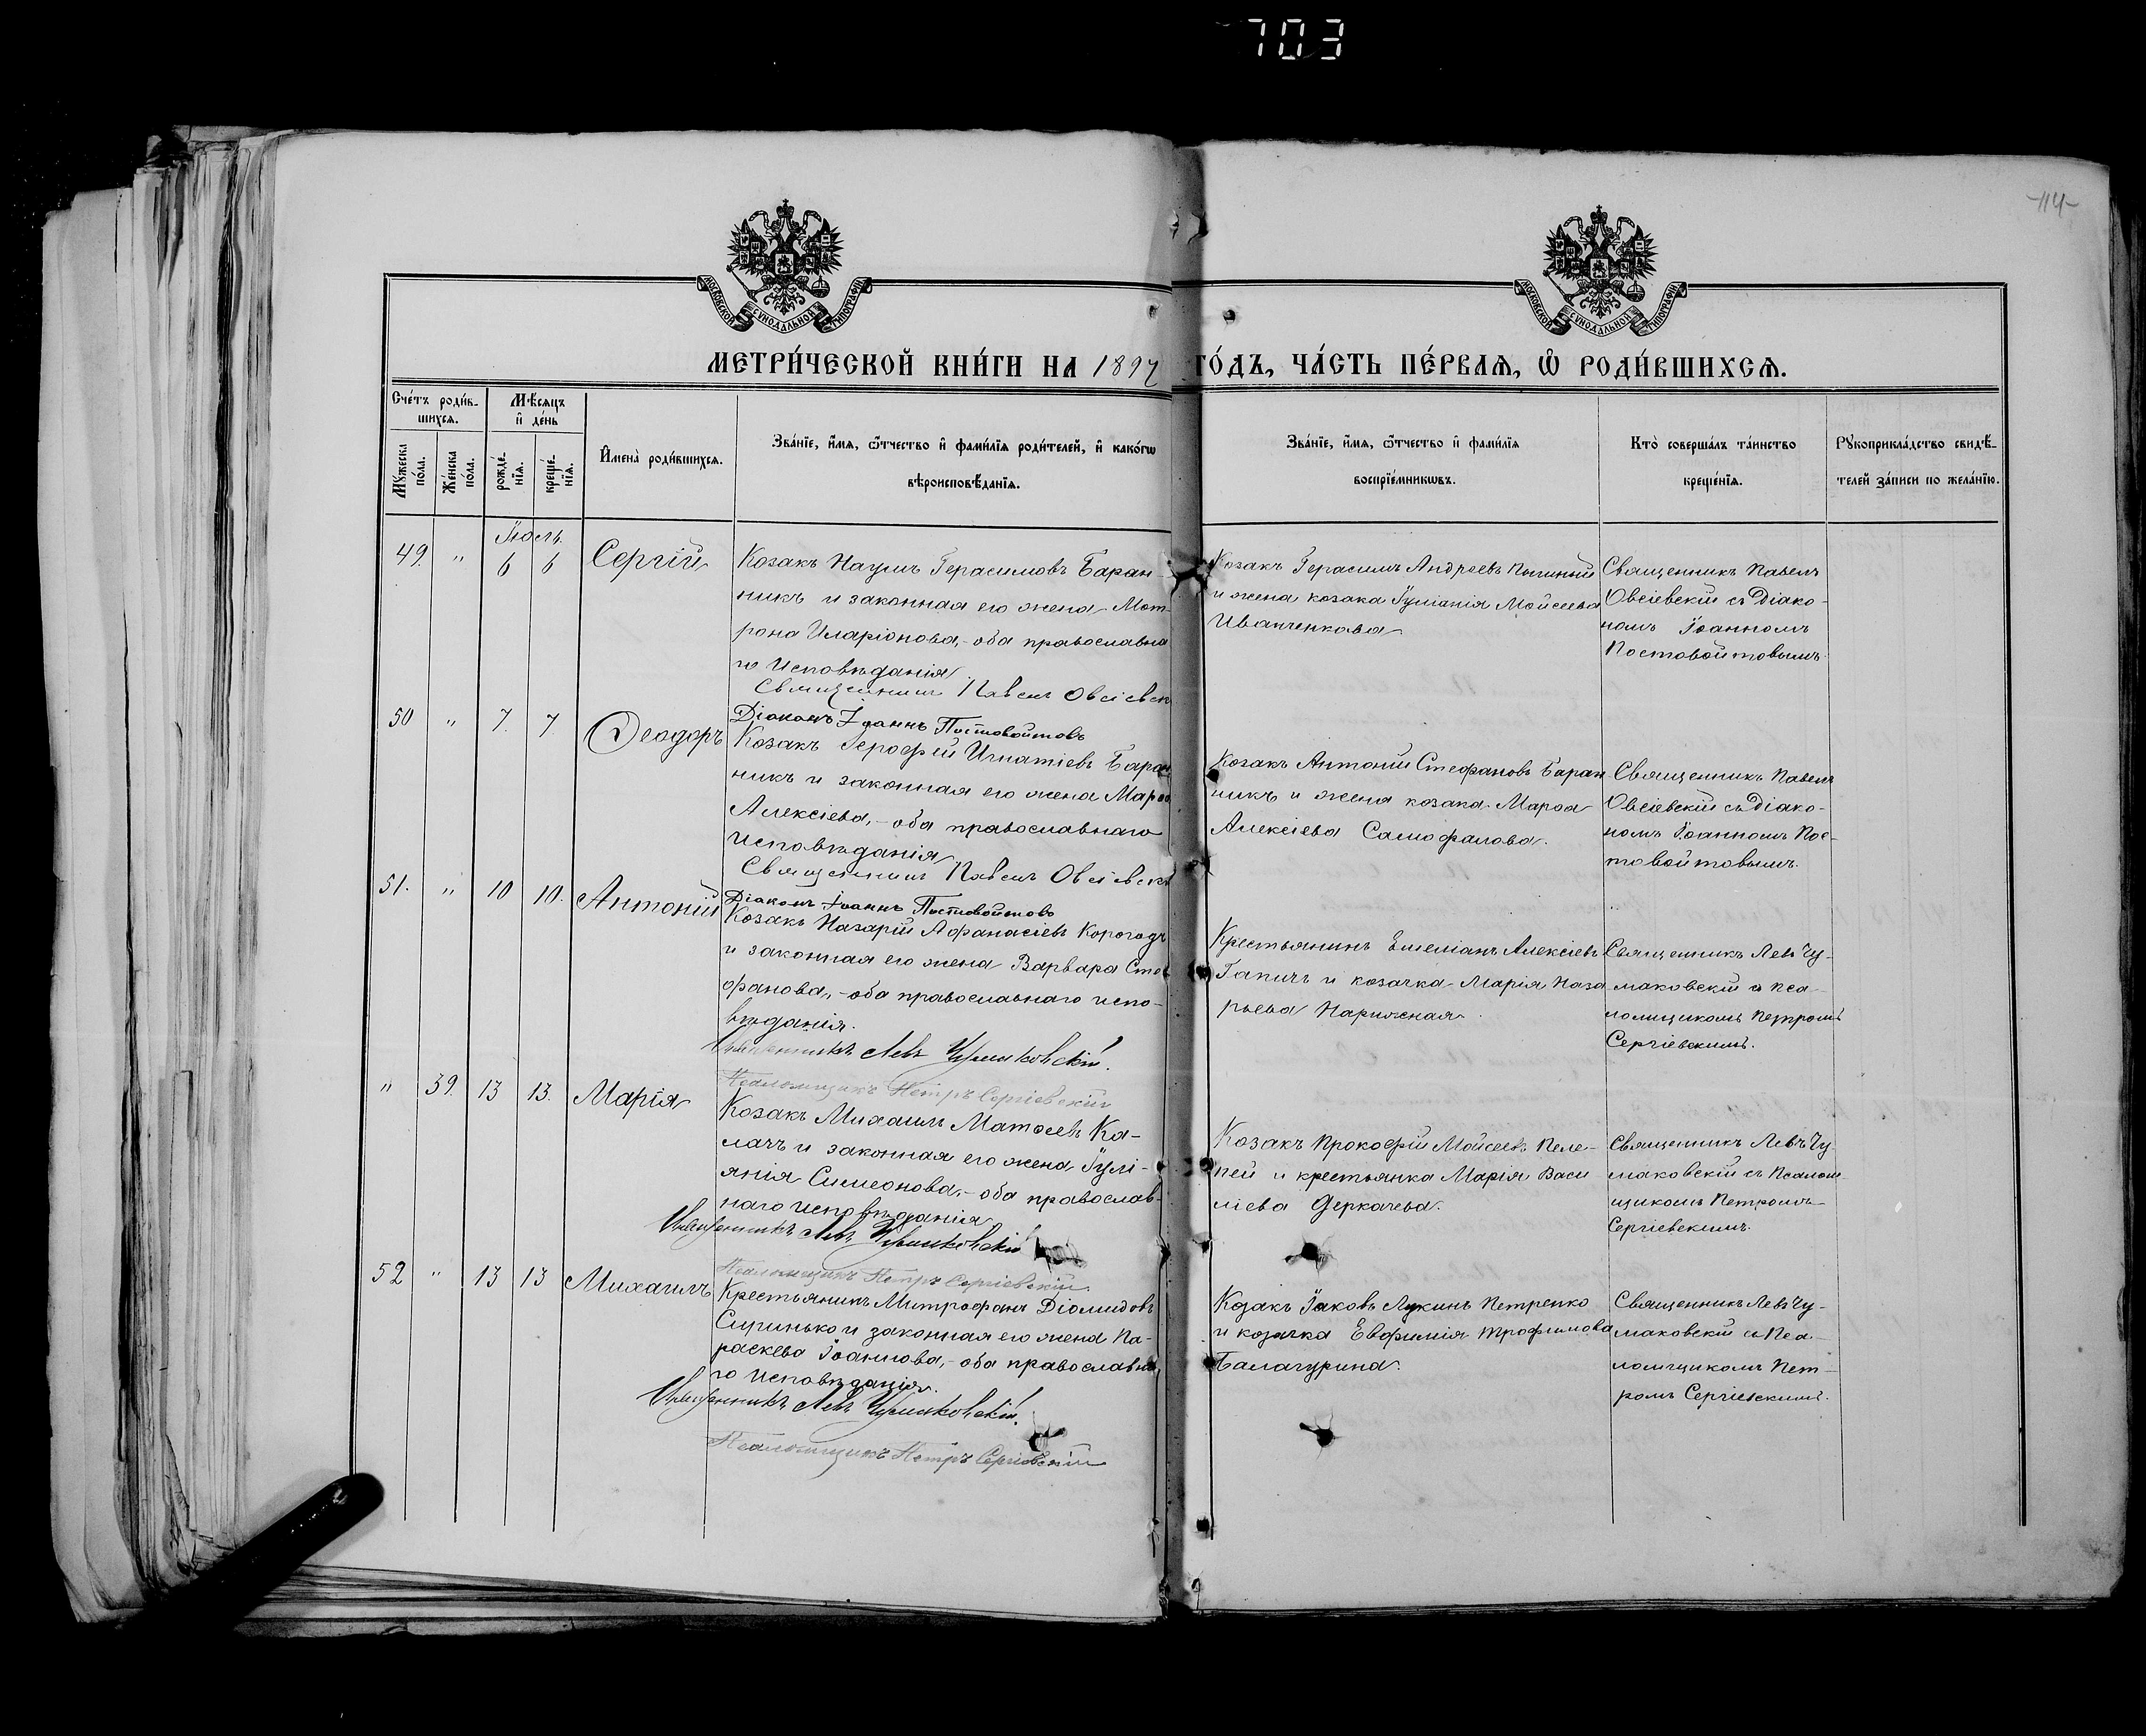 703
114
МОСКОВСКОЙ СУНОДАЛЬНОЙ ТИПОГРАФІИ
МОСКОВСКОЙ СУНОДАЛЬНОЙ ТИПОГРАФІИ
МЕТРИ́ЧЕСКОЙ КНИ́ГИ НА 1897 ГО́ДЪ, ЧА́СТЬ ПЕ́РВАѦ, Ѡ҆ РОДИ́ВШИХСѦ.
Сче́тъ роди́в-
шихсѧ.
Мꙋ́жеска по́ла.
Же́нска по́ла.
Мѣ́сѧцъ
и҆ де́нь
рожде́-
нїѧ.
креще́-
нїѧ.
И҆мена̀ роди́вшихсѧ.
Зва́нїе, и҆́мѧ, ѻ҆́тчество и҆ фами́лїѧ роди́телей, и҆ како́гѡ
вѣроисповѣ́данїѧ.
Зва́нїе, и҆́мѧ, ѻ҆́тчество и҆ фами́лїѧ
воспрїе́мникѡвъ.
Кто̀ соверша́лъ та́инство
креще́нїѧ.
Рꙋкоприкла́дство свидѣ́-
телей за́писи по жела́нїю.
Іюль.
49. " 6 6 Сергій
Козакъ Наумъ Герасимовъ Баран-
никъ и законная его жена Мат-
рона Иларіонова,- оба православна
го исповѣданія
Священникъ Павелъ Овсіевск
Діаконъ Іоаннъ Постовойтовъ
Козакъ Герасимъ Андреевъ
и жена козака Іуліанія Мойсеева
Иванченкова
Священникъ Павелъ
Овсіевскій съ Діако-
номъ Іоанномъ
Постовойтовымъ.
50 " 7. 7 Ѳеодоръ
Козакъ Герофій Игнатіевъ Баран
никъ и законная его жена Марѳа
Алексіева,- оба православнаго
исповѣданія
Священникъ Павелъ Овсіевск
Діаконъ Іоаннъ Постовойтовъ
Козакъ Антоній Стефановъ Баран
никъ и жена козака Марѳа
Алексіева Самофалова.
Священникъ Павелъ
Овсіевскій съ Діако-
номъ Іоанномъ Пос-
товойтовымъ.
51. " 10 10. Антоній
Козакъ Назарій Афанасіевъ Корогодъ
и законная его жена Варвара Сте
фанова,- оба православнаго испо-
вѣданія.
Священникъ Левъ Чумаковскій.
Псаломщикъ Петръ Сергіевскій
Крестьянинъ Емеліанъ Алексіевъ
Гапичъ и козачка Марія Наза
рьева Нарижная
Священникъ Левъ Чу-
маковскій съ Пса-
ломщикомъ Петромъ
Сергіевскимъ.
" 39. 13 13. Марія
Козакъ Михаилъ Матѳеевъ Ка-
лачъ и законная его жена Іулі-
анія Симеонова,- оба православ-
наго исповѣданія
Священникъ Левъ Чумаковскій
Псаломщикъ Петръ Сергіевскій
Козакъ Прокофій Мойсеевъ Пеле-
пей и крестьянка Марія Васи
ліева Деркачева.
Священникъ Левъ Чу
маковскій съ Псалом-
щикомъ Петромъ
Сергіевскимъ.
52 " 13 13 Михаилъ
Крестьянинъ Митрофанъ Діомидовъ
и законная его жена Па-
раскева Іоаннова,- оба православна
го исповѣданія.
Священникъ Левъ Чумаковскій.
Псаломщикъ Петръ Сергіевскій
Козакъ Іаковъ Лукинъ Петренко
и козачка Евфимія Трофимова
Балагурина.
Священникъ Левъ Чу-
маковскій съ Пса-
ломщикомъ Пет-
ромъ Сергіевскимъ.